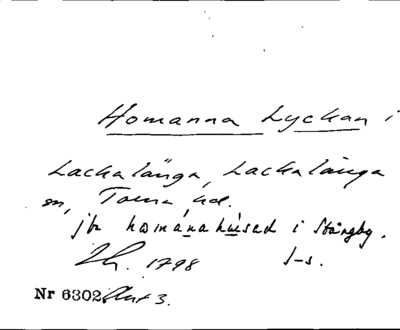 Homanna Lyckan i
Lackalänga, Lackalänga
sn, Torna hd.
jfr homanahusad i Stångby.
1798 J-s.
Nr 6302 3.